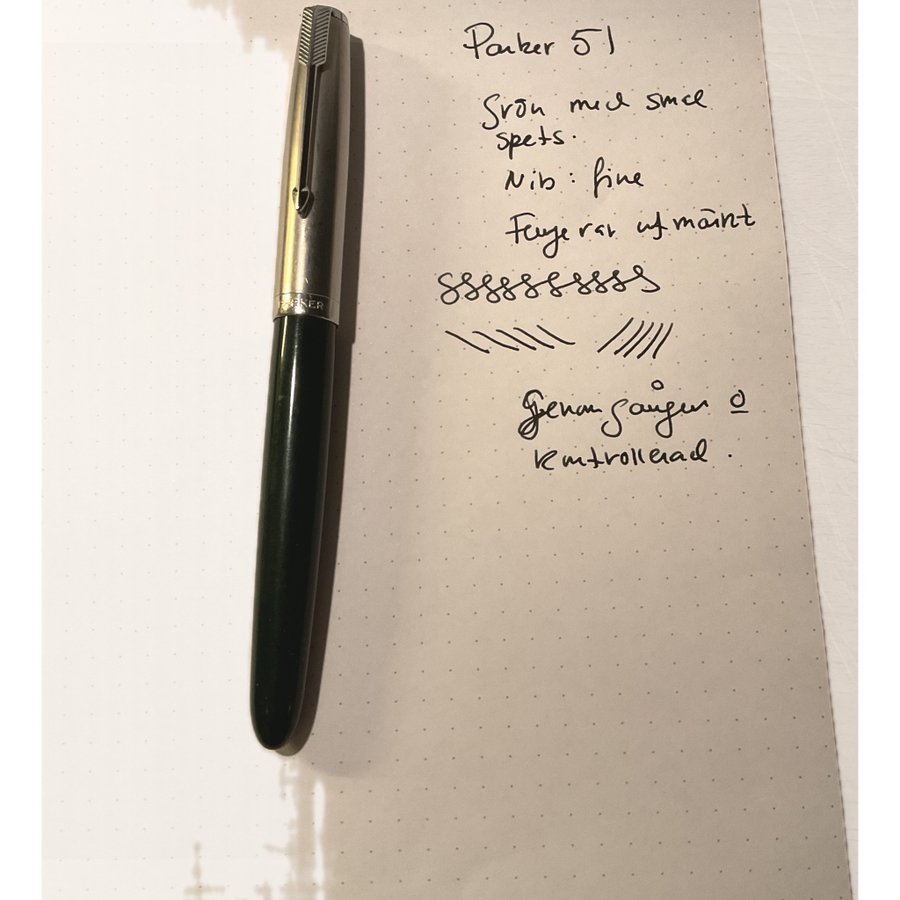 PARKER
Parker 51
Grön med smal
spets.
Nib: fine
Fungerar utmärkt
Genomgången o
kontrollerad.